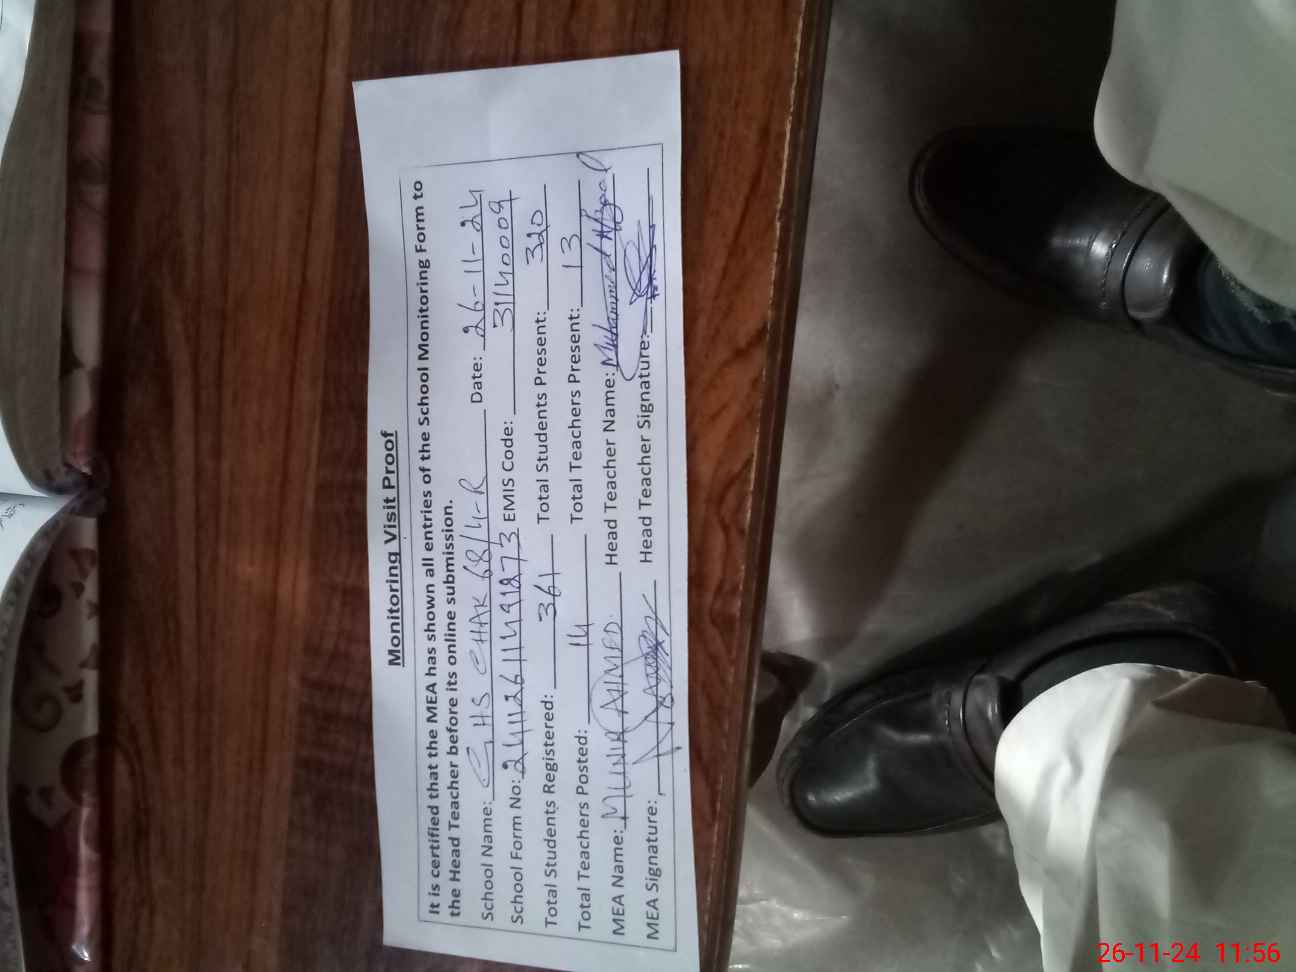 Monitoring Visit Proof
It is certified that the MEA has shown all entries of the School Monitoring Form to
the Head Teacher before its online submission.
School Name: GHS CHAK 68/4-R Date: 26-11-24
School Form No: 24112611491273 EMIS Code: 31140009
Total Students Registered: 361 Total Students Present: 320
Total Teachers Posted: 14 Total Teachers Present: 13
MEA Name: MUNIR AHMED Head Teacher Name: Muhammad Afzaal
MEA Signature: Head Teacher Signature:
26-11-24 11:56